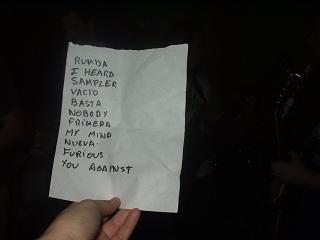 RUMBA
I HEARD
SAMPLER
VACIO
BASTA
NOBODY
PRIMERA
MY MIND
NUEVA.
FURIOUS
YOU AGAINST